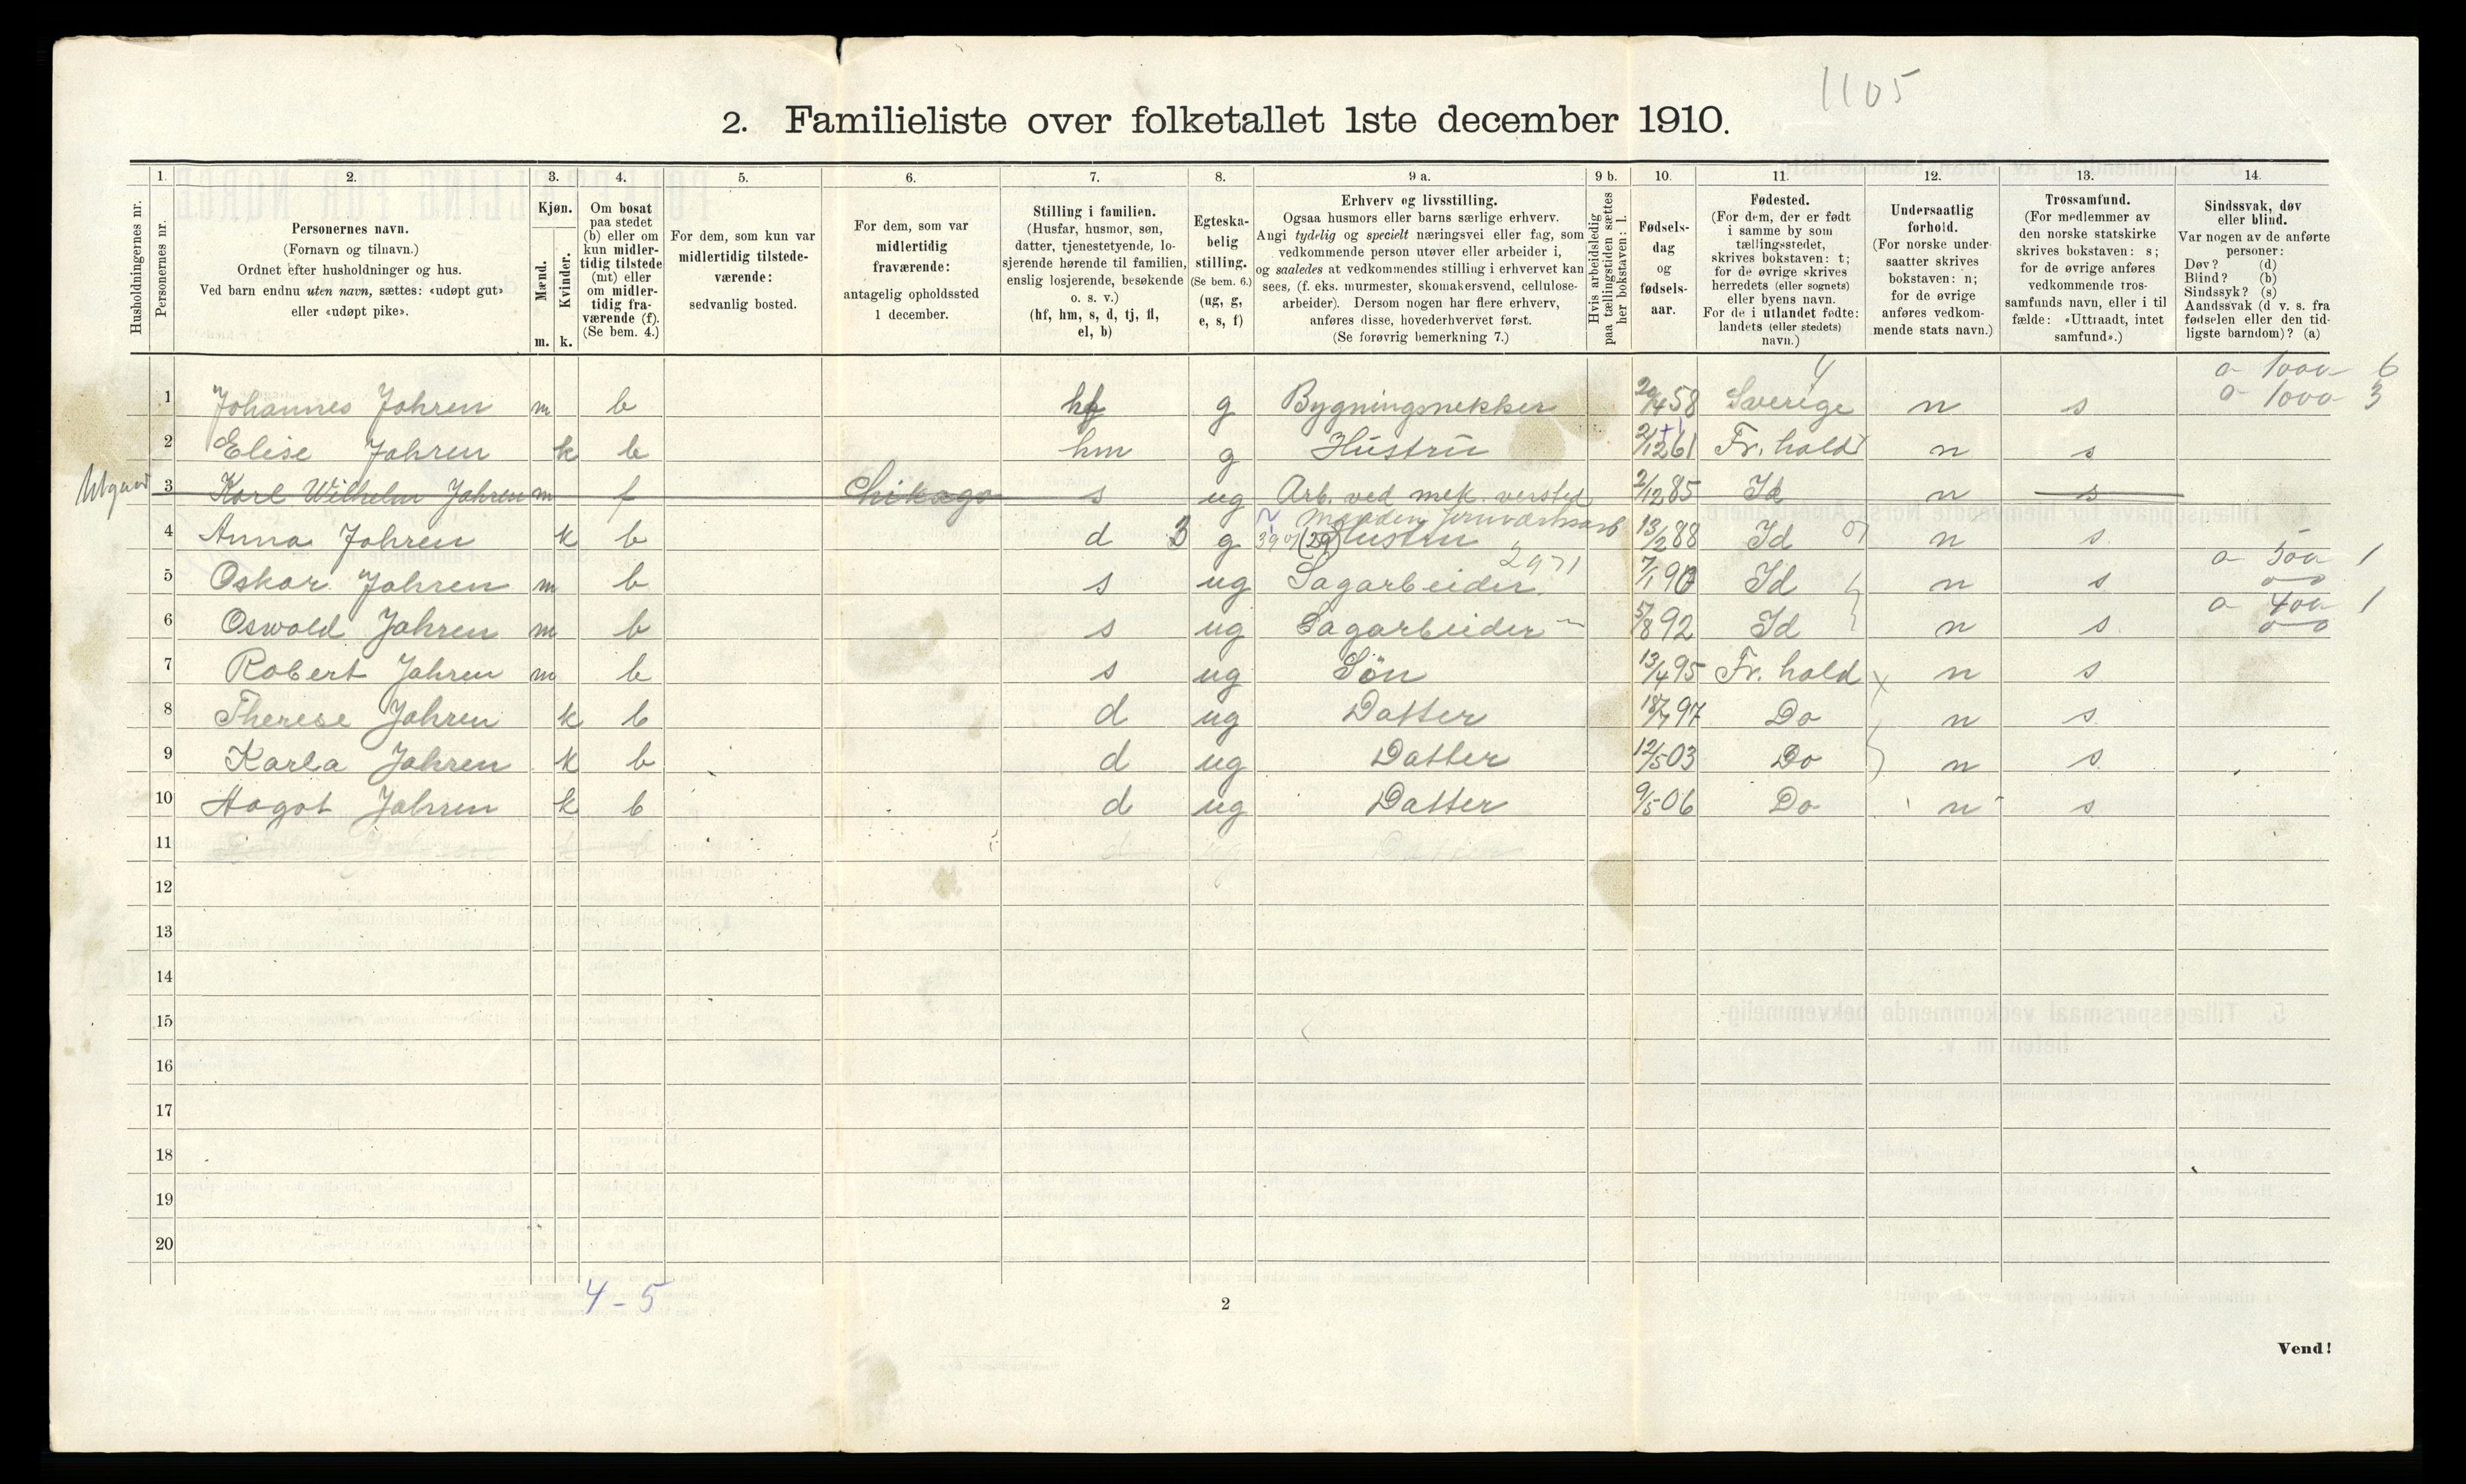 1105
2. Familieliste over folketallet 1ste december 1910.
1. 2. 3. 4. 5. 6. 7. 8. 9 a. 9 b. 10. 11. 12. 13. 14.
Husholdningernes nr.
Personernes nr.
Personernes navn.
(Fornavn og tilnavn.)
Ordnet efter husholdninger og hus.
Ved barn endnu uten navn, sættes: «udøpt gut»
eller «udøpt pike».
Kjøn.
Mænd.
Kvinder.
m. k.
Om bosat
paa stedet
(b) eller om
kun midler-
tidig tilstede
(mt) eller
om midler-
tidig fra-
værende (f).
(Se bem. 4.)
For dem, som kun var
midlertidig tilstede-
værende:
sedvanlig bosted.
For dem, som var
midlertidig
fraværende:
antagelig opholdssted
1 december.
Stilling i familien.
(Husfar, husmor, søn,
datter, tjenestetyende, lo-
sjerende hørende til familien,
enslig losjerende, besøkende
o. s. v.)
(hf, hm, s, d, tj, fl,
el, b)
Egteska-
belig
stilling.
(Se bem. 6.)
(ug, g,
e, s, f)
Erhverv og livsstilling.
Ogsaa husmors eller barns særlige erhverv.
Angi tydelig og specielt næringsvei eller fag, som
vedkommende person utøver eller arbeider i,
og saaledes at vedkommendes stilling i erhvervet kan
sees, (f. eks. murmester, skomakersvend, cellulose-
arbeider). Dersom nogen har flere erhverv,
anføres disse, hovederhvervet først.
(Se forøvrig bemerkning 7.)
Hvis arbeidsledig
paa tællingstiden sættes
her bokstaven: l.
Fødsels-
dag
og
fødsels-
aar.
Fødested.
(For dem, der er født
i samme by som
tællingsstedet,
skrives bokstaven: t;
for de øvrige skrives
herredets (eller sognets)
eller byens navn.
For de i utlandet fødte:
landets (eller stedets)
navn.)
Undersaatlig
forhold.
(For norske under-
saatter skrives
bokstaven: n;
for de øvrige
anføres vedkom-
mende stats navn.)
Trossamfund.
(For medlemmer av
den norske statskirke
skrives bokstaven: s;
for de øvrige anføres
vedkommende tros-
samfunds navn, eller i til
fælde: «Uttraadt, intet
samfund».)
Sindssvak, døv
eller blind.
Var nogen av de anførte
personer:
Døv? (d)
Blind? (b)
Sindssyk? (s)
Aandssvak (d v. s. fra
fødselen eller den tid-
ligste barndom)? (a)
a 1000 6
1 Johannes Jahren m b hf g Bygningsnekker 20/4 58 Sverige n s a 1000 3
2 Elise Jahren k b hm g Hustru 2/12 61 Fr. hald n s
Utgaar 3 Karl Wilhelm Jahren m f Chikago s ug Arb. ved mek. versted 2/12 85 Id n s
4 Anna Jahren k b d 3 g Hustru 13/2 88 Id n s
2971 a 500 1
5 Oskar Jahren m b s ug Sagarbeider 7/1 90 Id n s
a 400 1
6 Oswald Jahren m b s ug Sagarbeider 5/8 92 Id n s
7 Robert Jahren m b s ug Søn 13/4 95 Fr. hald n s
8 Therese Jahren k b d ug Datter 18/7 97 Do n s
9 Karla Jahren k b d ug Datter 12/5 03 Do n s
10 Hagot Jahren k b d ug Datter 9/5 06 Do n s
11
12
13
14
15
16
17
18
19
20
4 - 5
2
Vend!